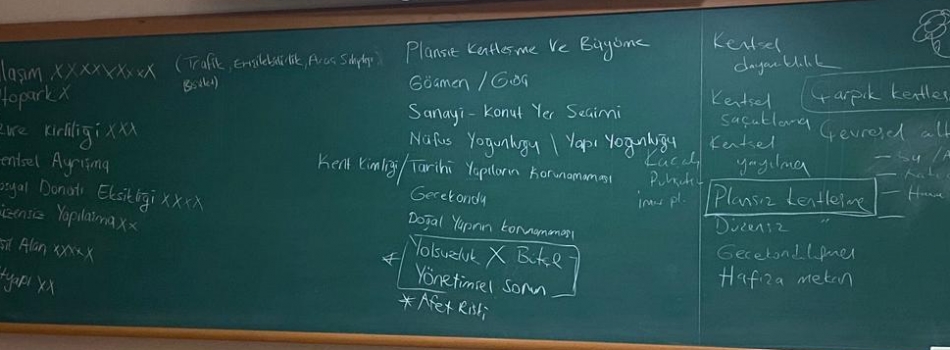 laşım XXXXXXXXX (Trafik, Erişilebilirlik, Araç Sahipliği,
Bisiklet)
topark X
evre Kirliliği XXX
entsel Ayrışma
osyal Donatı Eksikliği XXXX
üzensiz Yapılaşma XX
şil Alan XXXXX
tyapı XX
Plansız Kentleşme Ve Büyüme
Göçmen / Göç
Sanayi - Konut Yer Seçimi
Nüfus Yoğunluğu \ Yapı Yoğunluğu
Kent Kimliği / Tarihi Yapıların Korunamaması
Gecekondu
Doğal Yapının Korunamaması
Yolsuzluk X Bütçe
Yönetimsel Sorun
* Afet Riski
Kaçak
imar pl.
Kentsel
dayanıklılık
Kentsel
saçaklanma
Kentsel
yayılma
Plansız kentleşme
Düzensiz "
Gecekondulaşma
Hafıza mekan
Çarpık kentleş
Çevresel alt
- Su /
- Hava